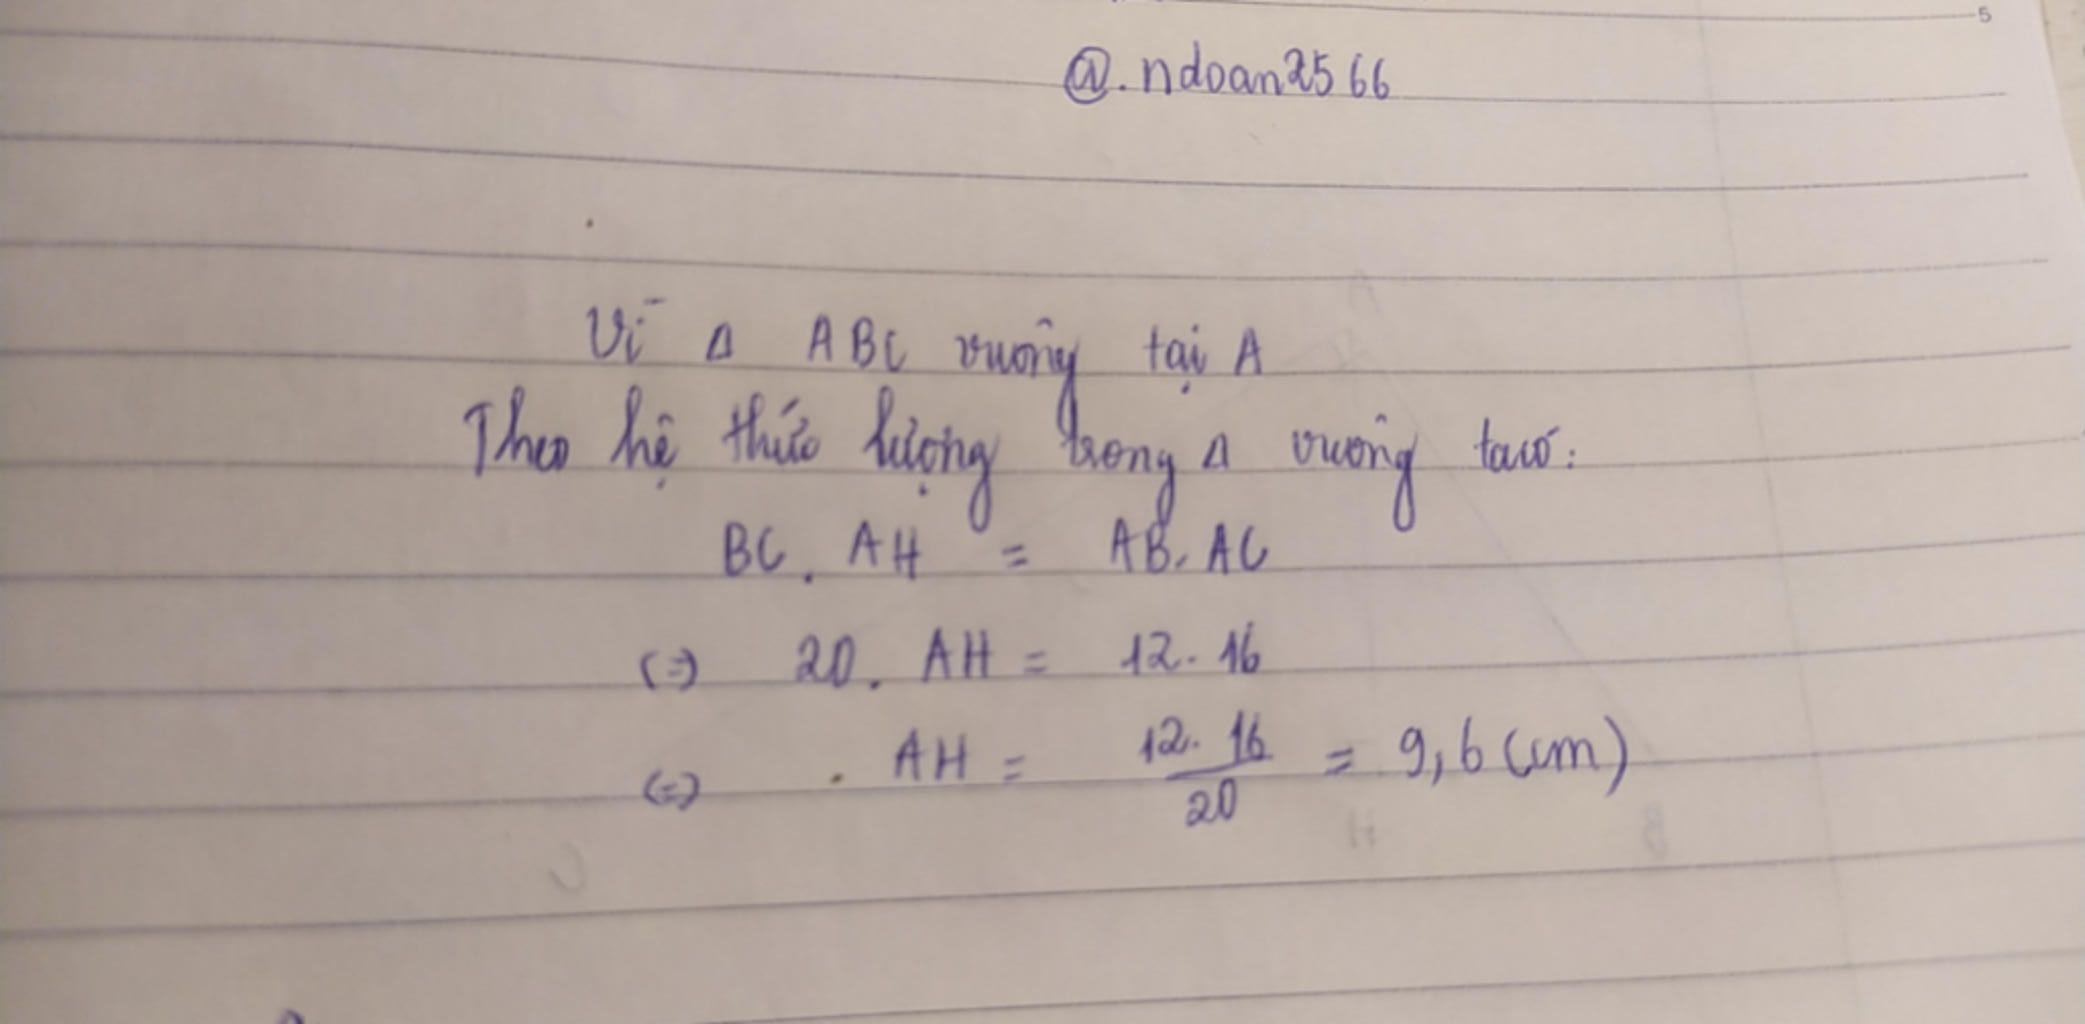 5
@.ndoan2566
Vì Δ ABC vuông tại A
Theo hệ thức lượng trong Δ vuông ta có:
BC. AH = AB. AC
(=) 20. AH = 12. 16
(=) . AH = 12. 16 / 20 = 9,6 (cm)